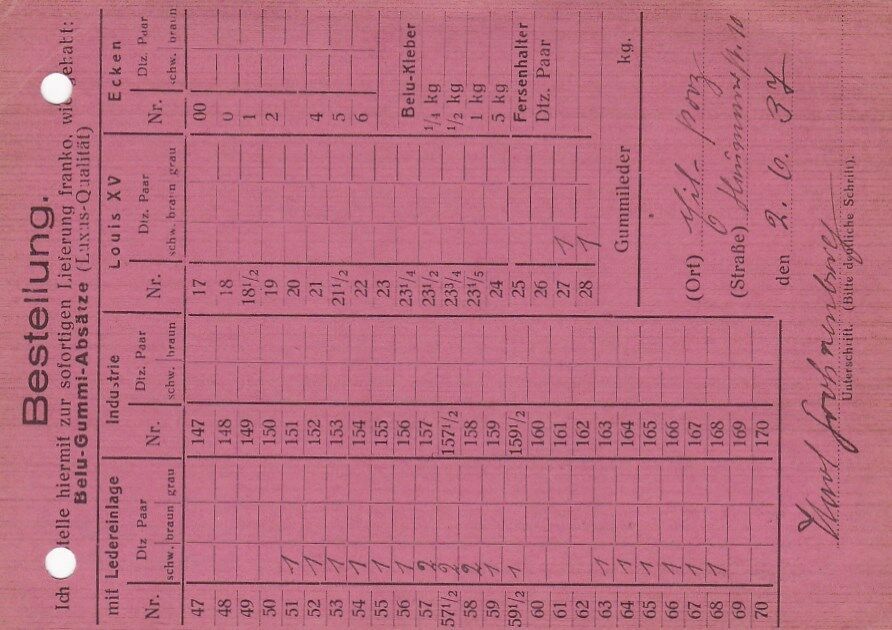 Bestellung.
Ich telle hiermit zur sofortigen Lieferung franko, wie gehabt:
Belu-Gummi-Absätze (Luxus-Qualität)
mit Ledereinlage Industrie Louis XV Ecken
Nr. Dtz Paar Nr. Dtz. Paar Nr. Dtz. Paar Nr. Dtz. Paar
schw. braun grau schw. braun schw. braun grau schw. braun
47 147 17 00
48 148 18 0
49 149 18½ 1
50 150 19 2
51 1 151 20
52 1 152 21 4
53 1 153 21½ 5
54 1 154 22 6
55 1 155 23
56 1 156 23¼ Belu-Kleber
57 2 157 23½ ¼ kg
57½ 2 157½ 23¾ ½ kg
58 2 158 23⅕ 1 kg
59 1 159 24 5 kg
59½ 1 159½ 25 Fersenhalter
60 160 26 Dtz. Paar
61 161 27 1
62 162 28 1
63 1 163
64 1 164 Gummileder kg.
65 1 165
66 1 166
67 1 167 (Ort) Porz
68 1 168
69 169 (Straße)
70 170
den 2. 6. 37
Unterschrift. (Bitte deutliche Schrift).